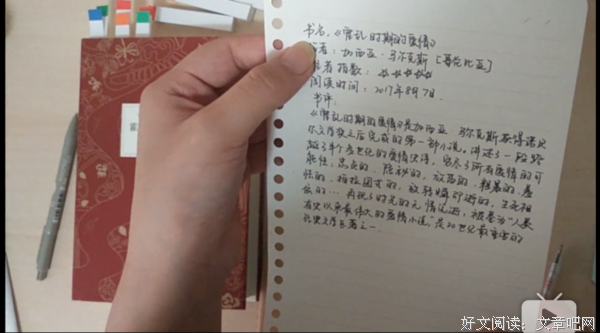 书名：《霍乱时期的爱情》
者：加西亚·马尔克斯 [哥伦比亚]
者指数：
阅读时间：2017年8月7日
书评：
《霍乱时期的爱情》是加西亚·马尔克斯获得诺贝
尔文学奖之后完成的第一部小说。讲述了一段跨
越了半个多世纪的爱情史诗，穷尽了所有爱情的可
能性：忠贞的、隐秘的、放荡的、粗暴的、羞
怯的、柏拉图式的、放荡的、转瞬即逝的、生死相
依的… 再现了时光的无情流逝，被誉为“人类
有史以来最伟大的爱情小说，”是20世纪最重要的
经典文学巨著之一。
好文阅读：文章吧网